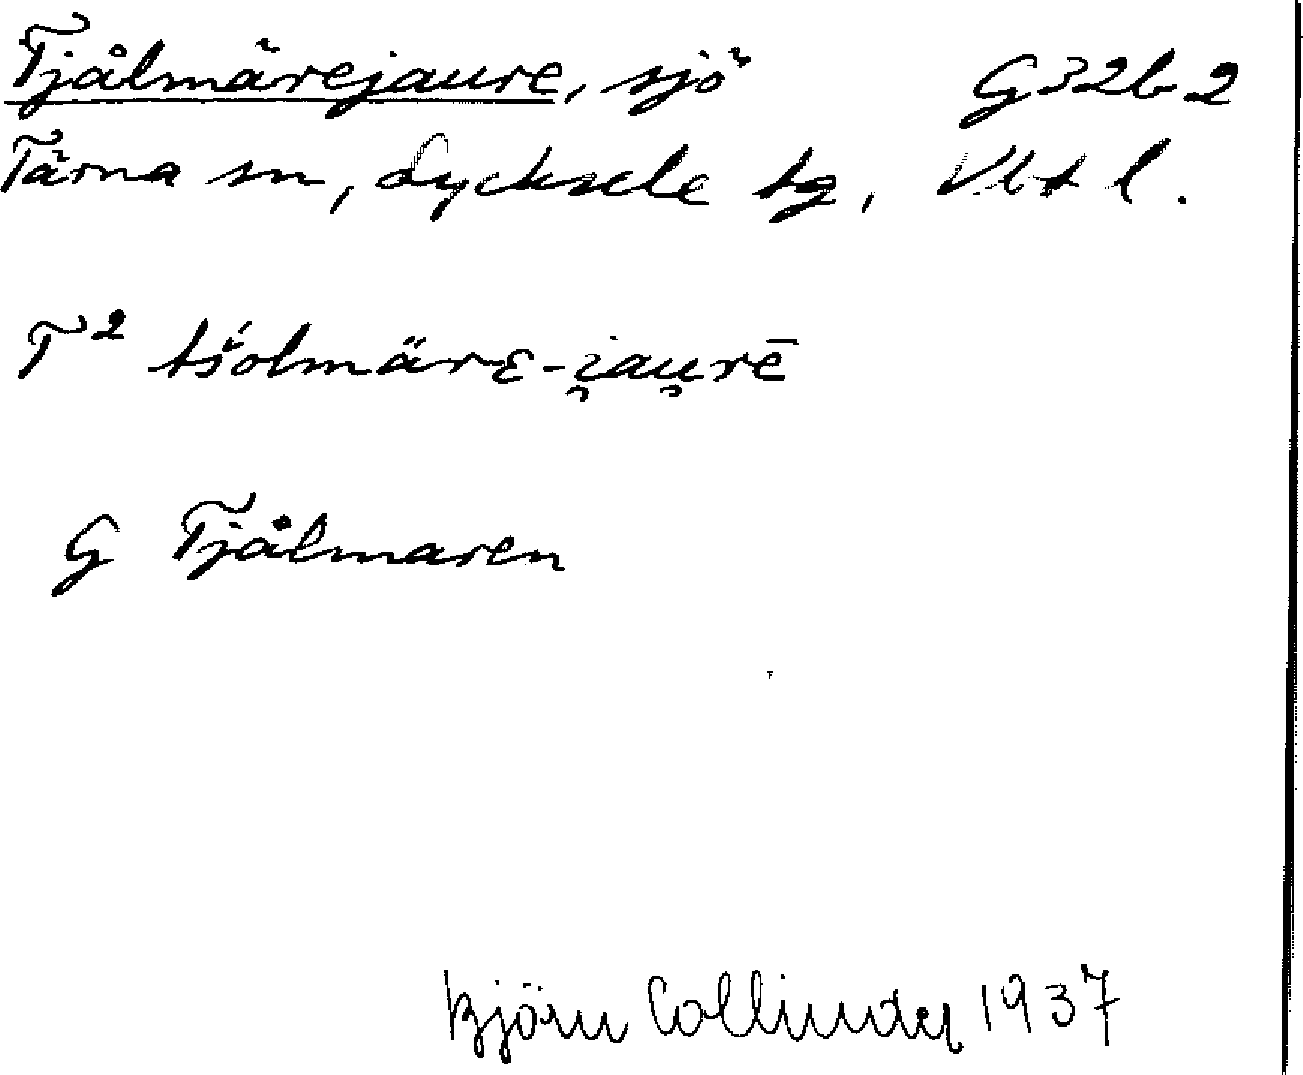 Tjålmärejaure, sjö G32b2
Tärna sn, Lycksele tg, Vbt l.
T² tš́olmärɛ-i̯au̯rē
G Tjålmaren
Björn Collinder 1937